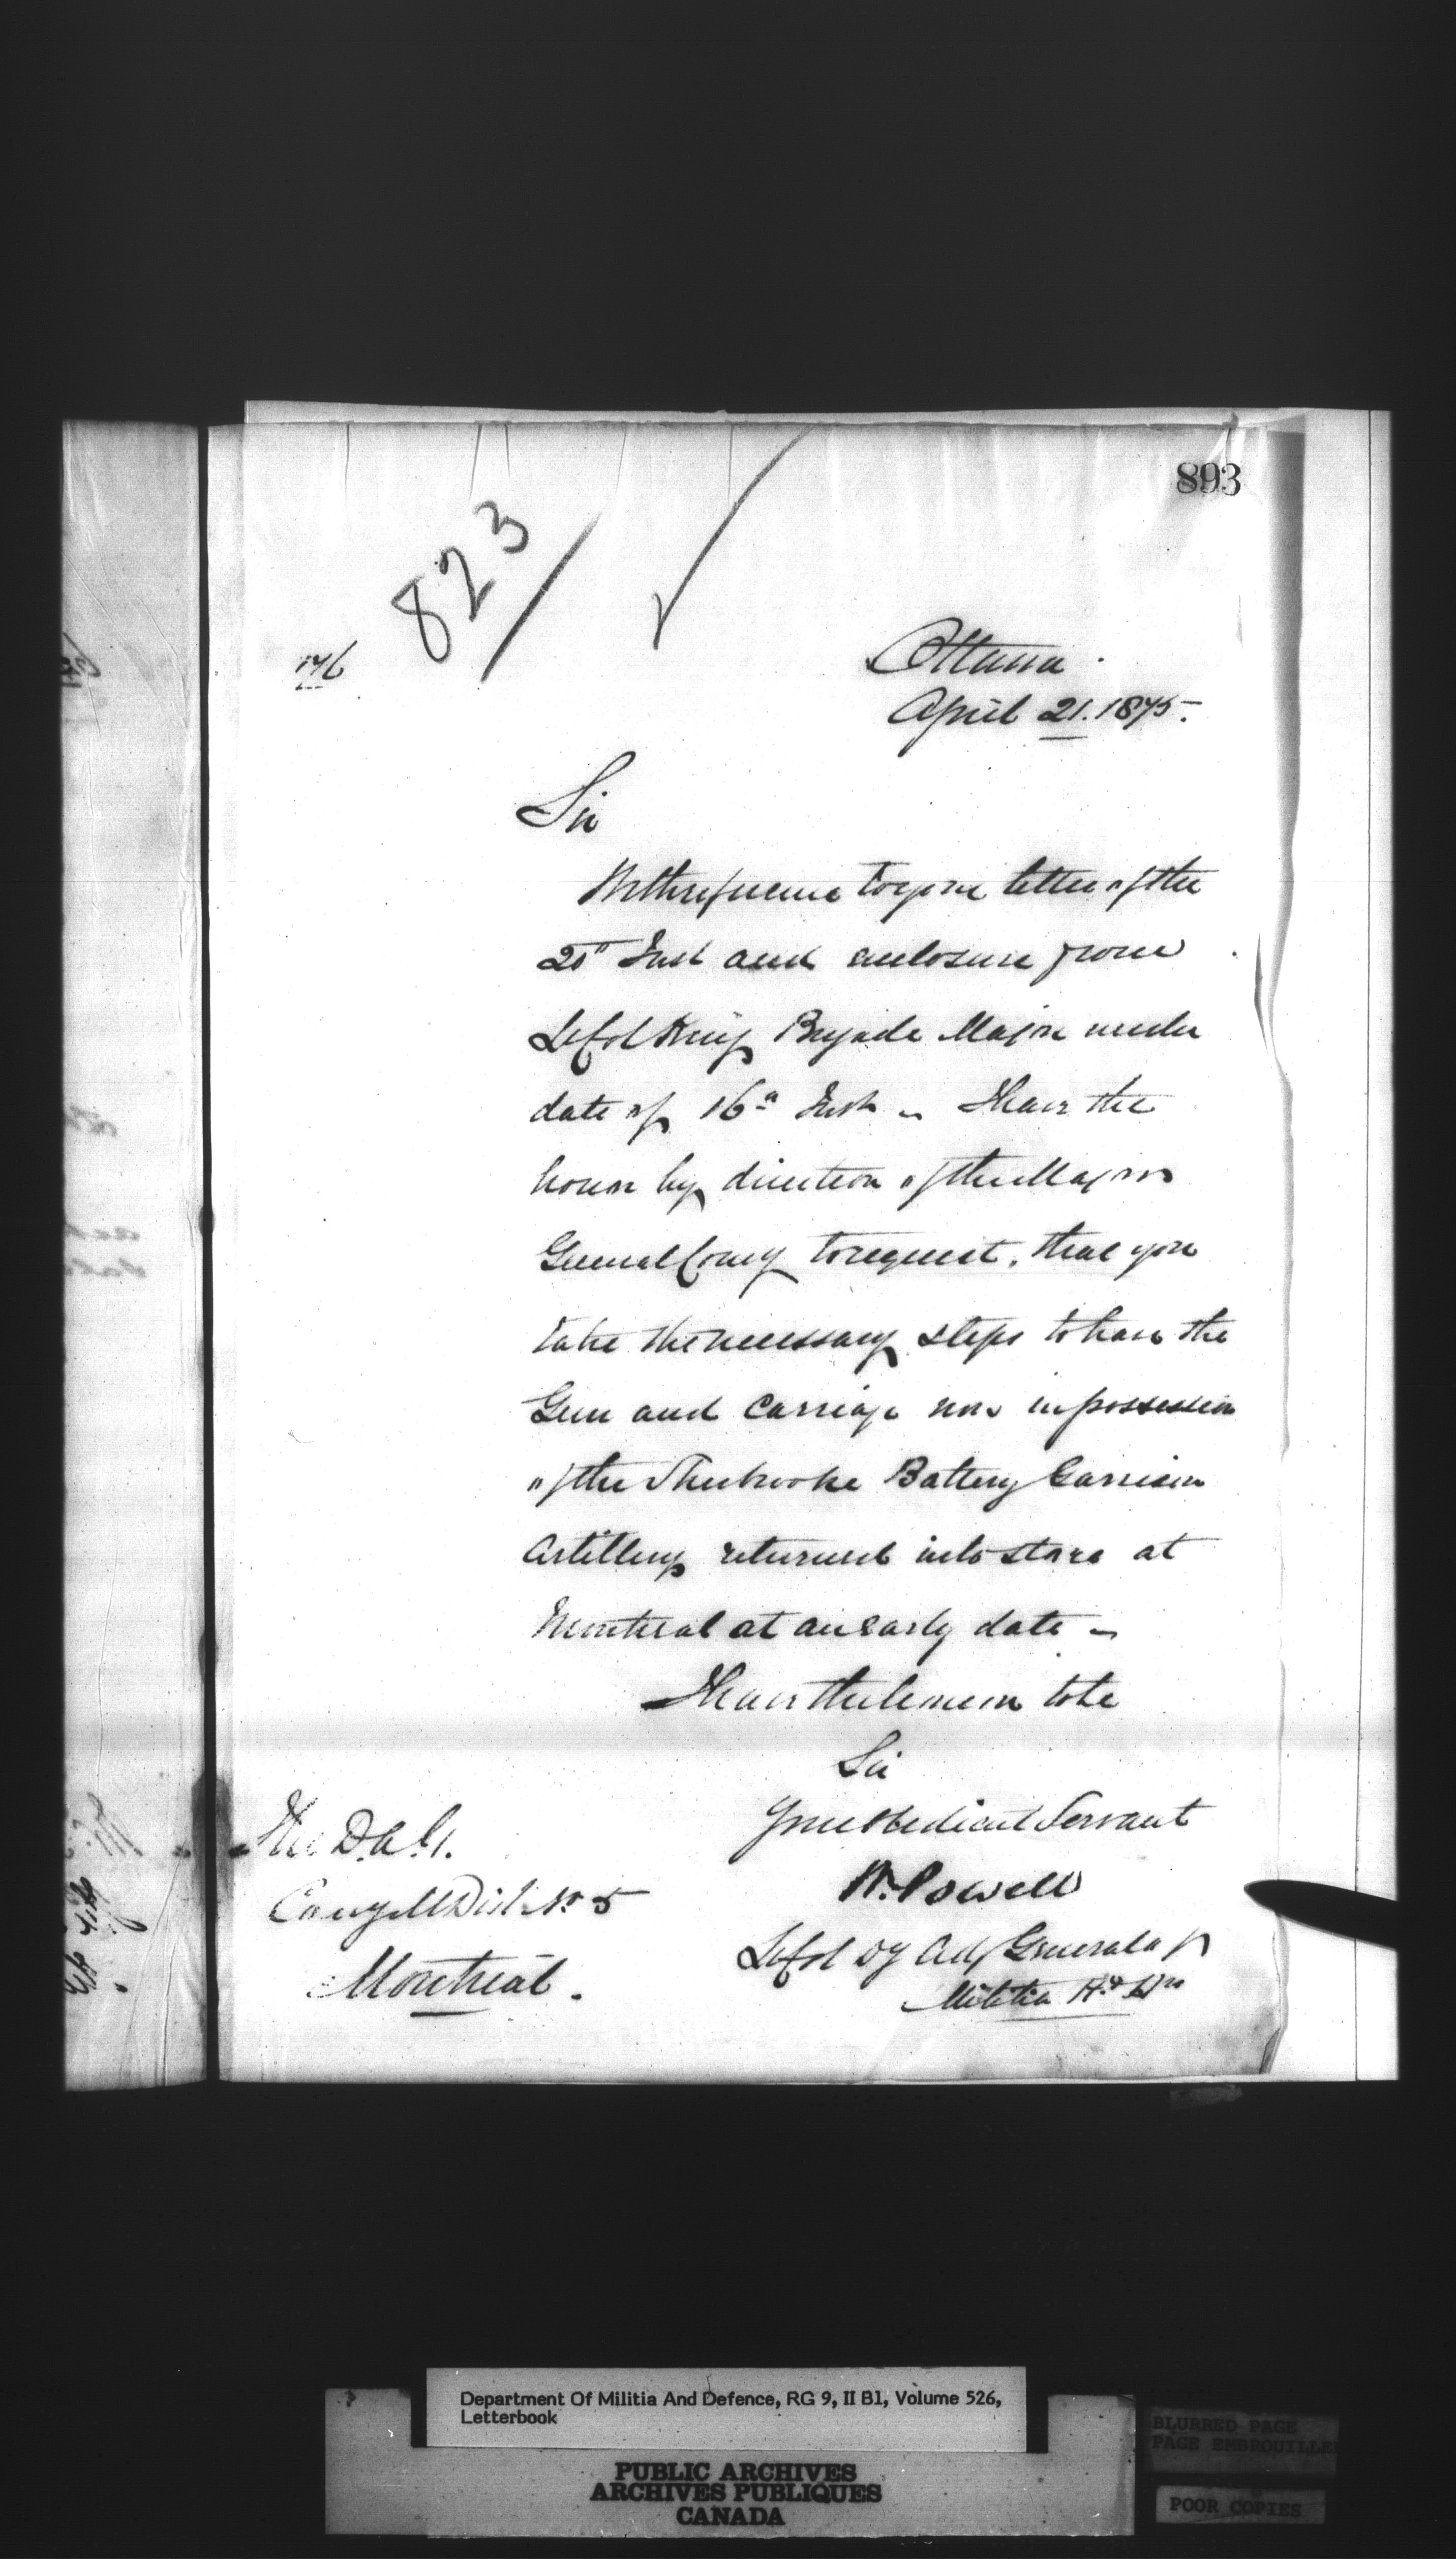 893
823
146
Ottawa
April 21. 1875.
Sir
With reference to your letter of the
20th Inst and enclosure from
Lt Col King Brigade Major under
date of 16th Inst – I have the
honor by direction of the Major
General Comg to request, that you
take the necessary steps to have the
Gun and Carriage now in possession
of the Sherbrooke Battery Garrison
Artillery returned into store at
Montreal at an early date –
I have the honor to be
Sir
Your Obedient Servant
W. Powell
Lt Col Dy Adj General of
Militia Hd Qrs
The D.A.G.
Comg M Dist No 5
Montreal.
Department Of Militia And Defence, RG 9, II B1, Volume 526,
Letterbook
PUBLIC ARCHIVES
ARCHIVES PUBLIQUES
CANADA
BLURRED PAGE
PAGE EMBROUILLE
POOR COPIES